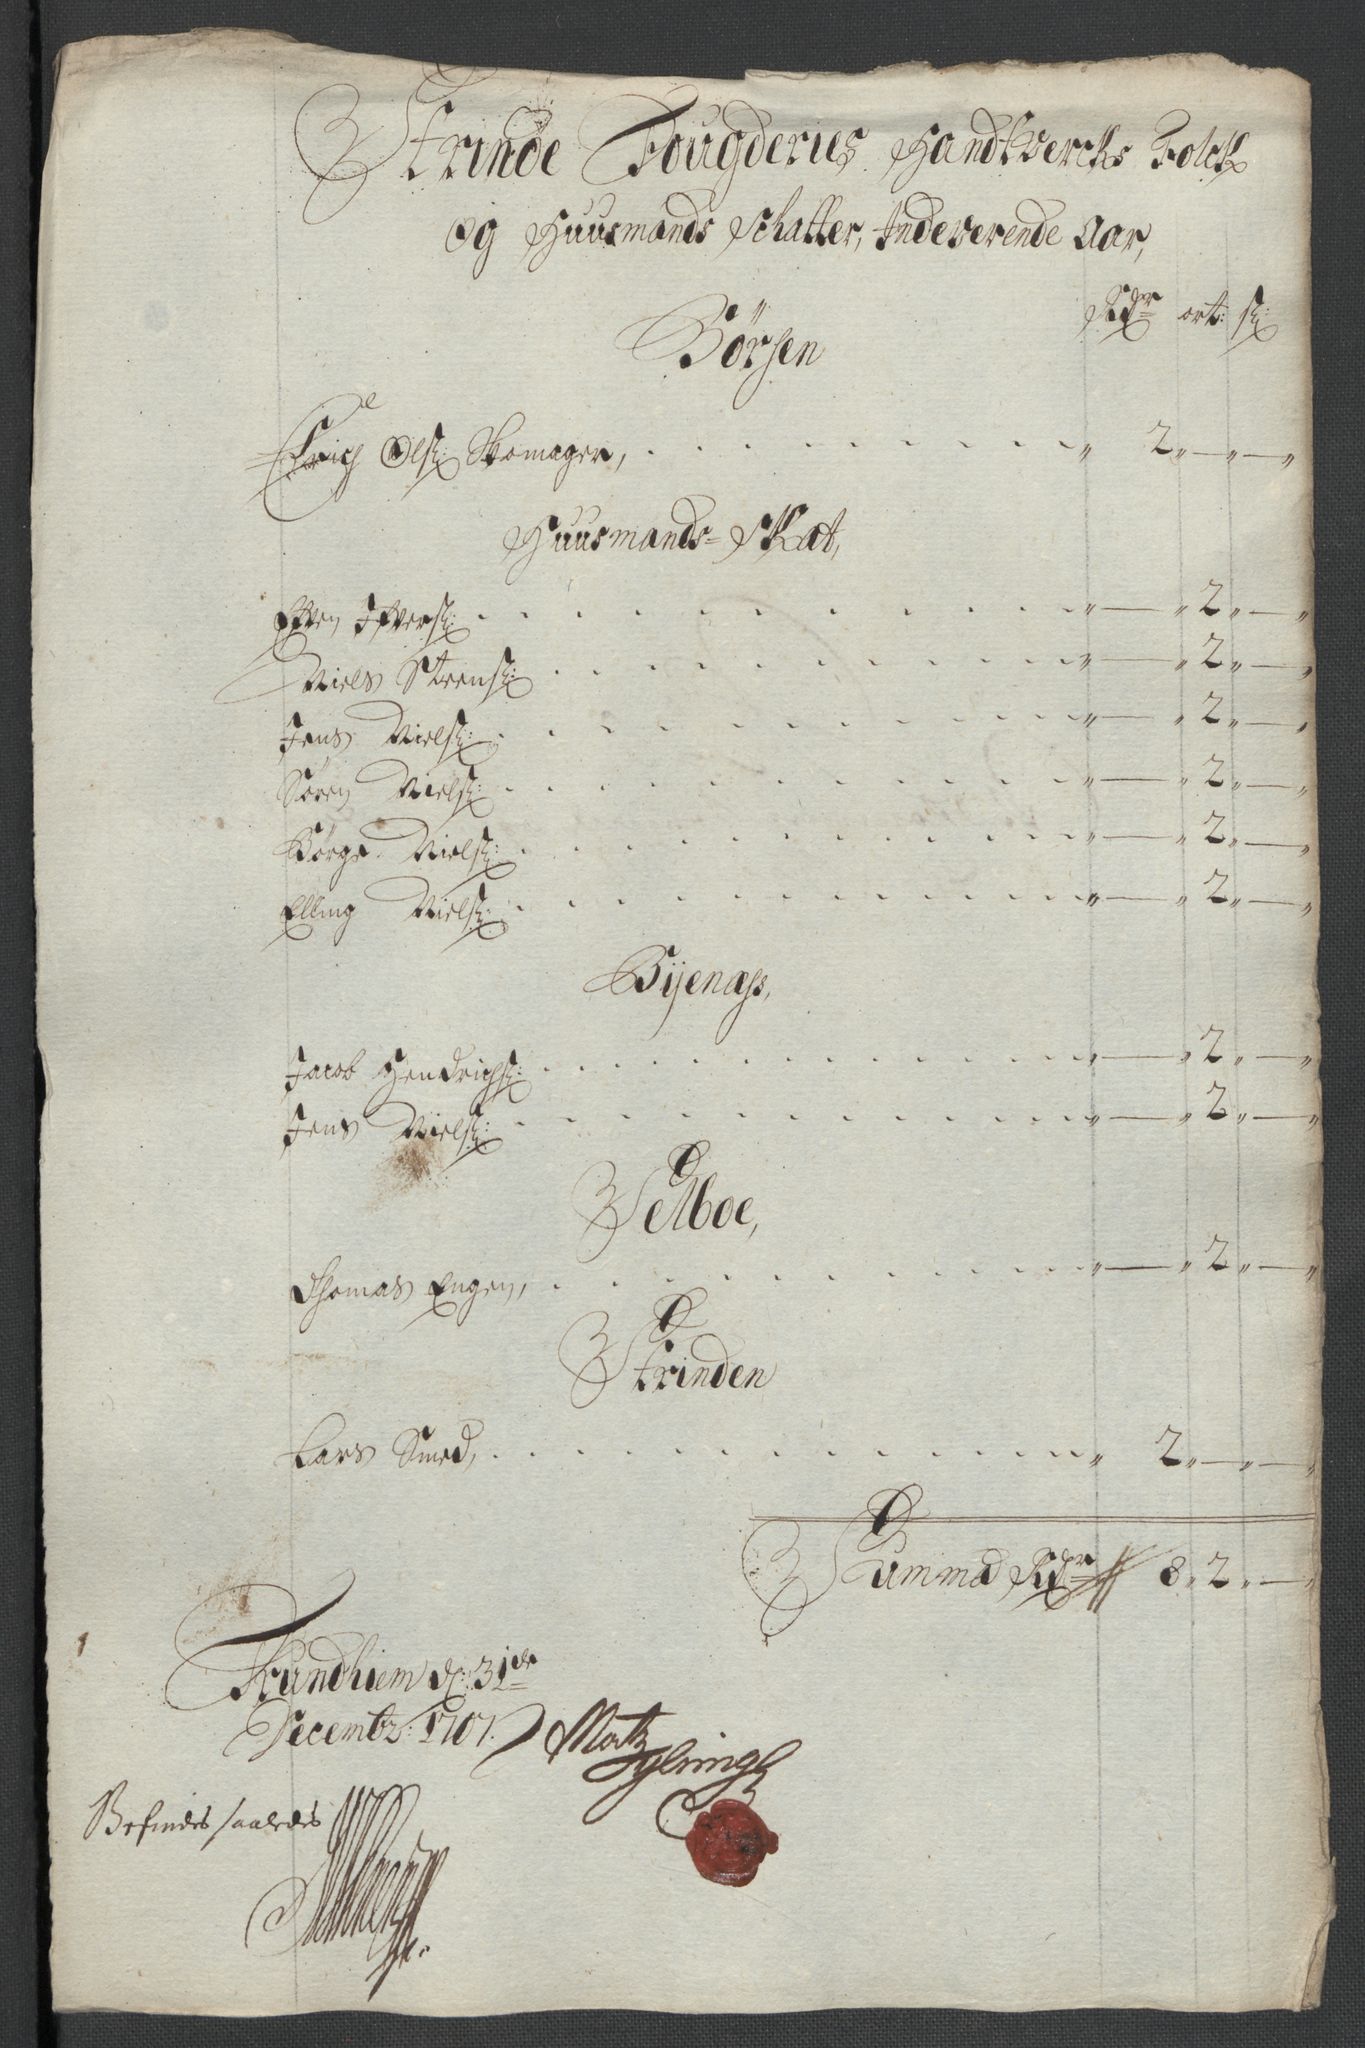 Strinde Fougderies Handtvercks Folck
Og Huusmands Schatter, Indeverende Aar,
Rdr ort: sk:
Börsen
Erich Olss: Skomager, . . . . . . . . . . „ 2„—„—„
Huusmands= Skat,
Ifver Ifverss: . . . . . . . . . . „—„ 2„—„
Niels Steenss: . . . . . . . . . . „—„ 2„—„
Jens Nielss: . . . . . . . . . . „—„ 2„—„
Sören Nielss: . . . . . . . . . . „—„ 2„—„
Börge Nielss: . . . . . . . . . . „—„ 2„—„
Elling Nielss: . . . . . . . . . . „—„ 2„—„
Byenæss,
Jacob Hendrichss: . . . . . . . . . . „—„ 2„—„
Jens Nielss: . . . . . . . . . . „—„ 2„—„
Selboe,
Thomas Engen, . . . . . . . . . . „—„ 2„—„
Strinden
Lars Smed, . . . . . . . . . . „ 2„—„—„
Summa Rdr 8„ 2„—„
Trundhiem d: 31de
Decembr: 1707.
Befindes saaledes